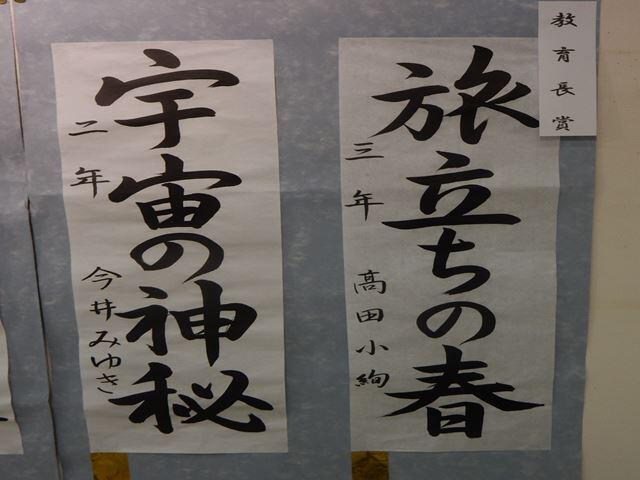 教育長賞
旅立ちの春
三年 高田小絢
宇宙の神秘
二年 今井みゆき